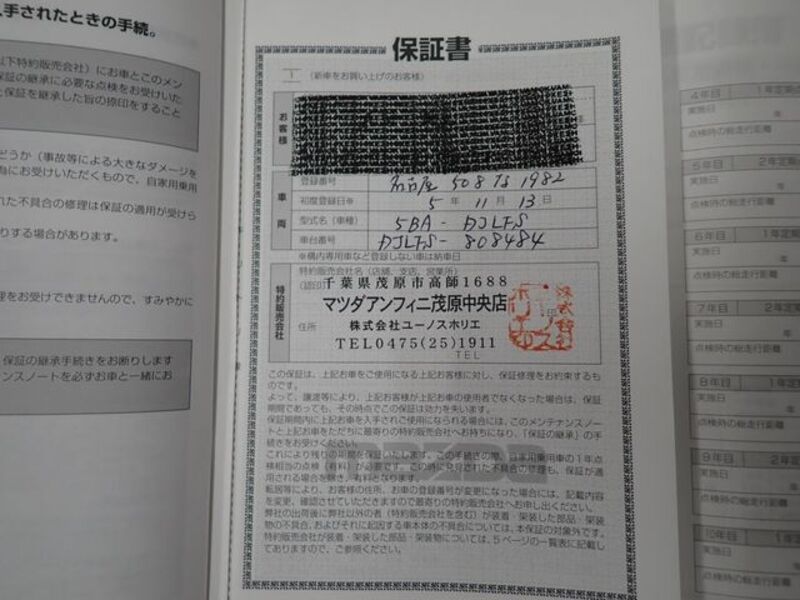 入手されたときの手続。
以下特約販売会社)にお車とこのメン
保証の継承に必要な点検をお受けいた
保証を継承した旨の捺印をすること
どうか(事故等による大きなダメージを
にお受けいただくもので、自家用乗用
れた不具合の修理は保証の適用が受けら
りする場合があります。
理をお受けできませんので、すみやかに
保証の継承手続きをお断りします
ナンスノートを必ずお車と一緒にお
保証書
1 (新車をお買い上げのお客様)
お客様
車両
登録番号 名古屋 508 1982
初度登録日※ 5年 11月 13日
型式名(車種) 5BA-DJLFS
車台番号 DJLFS-808484
※構内専用車など登録しない車は納車日
特約販売会社
特約販売会社名(店舗、支店、営業所)
千葉県茂原市高師1688
マツダアンフィニ茂原中央店
住所 株式会社ユーノスホリエ
TEL0475(25)1911
TEL
この保証は、上記お車をご使用になる上記お客様に対し、保証修理をお約束するも
のです。
よって、譲渡等により、上記お客様が上記お車の使用者でなくなった場合は、保証
期間であっても、その時点でこの保証は効力を失います。
保証期間内に上記お車を入手されご使用になられる場合には、このメンテナンスノー
トと上記お車をただちに最寄りの特約販売会社へお持ちになり、「保証の継承」の手
続きをお受けください。
これにより残りの期間を保証いたします。この手続きの際、自家用乗用車の1年点
検相当の点検(有料)が必要です。この時に発見された不具合の修理も、保証が適
用される場合を除き、有料となります。
転居等により、お客様の住所、お車の登録番号が変更になった場合には、記載内容
を変更、確認させていただきますので最寄りの特約販売会社へお申し出ください。
弊社の出荷後に弊社以外の者(特約販売会社を含む)が装着・架装した部品・架装
物の不具合、およびそれに起因する車本体の不具合については、本保証の対象外です。
特約販売会社が装着・架装した部品・架装物については、5ページの一覧表に記載し
てありますので、ご参照ください。
4年目 1年定期点
実施日
点検時の総走行距離
5年目 2年定期
実施日
点検時の総走行距離
6年目 1年定期
実施日
点検時の総走行距離
7年目 2年定
実施日
点検時の総走行距離
8年目 1年定
実施日
点検時の総走行距離
9年目 2年定
実施日
点検時の総走行距離
10年目 1年定
実施日
点検時の総走行距離